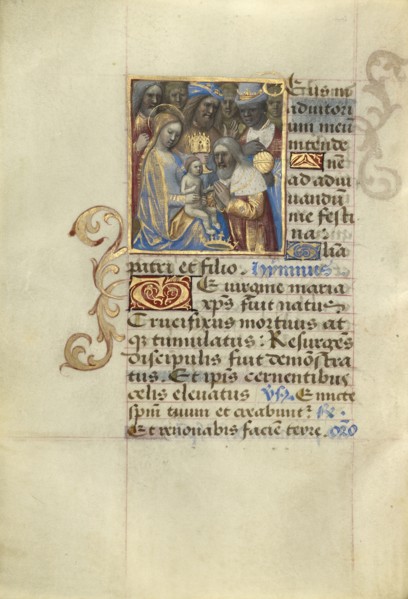 Eus in
adiutori
um meū
intende
Ne
ad adiu
uandū
me festi
na. Glia
patri et filio. Hymnus
E uirgine maria
xp̄s fuit natus
Crucifixus mortuus at
q̄ tumulatus: Resurgēs
discipulis fuit demōstra
tus. Et ip̄is cernentibus
celis eleuatus Vs. Emicte
sp̄m tuum et creabunt
Et renouabis faciem terre. orō